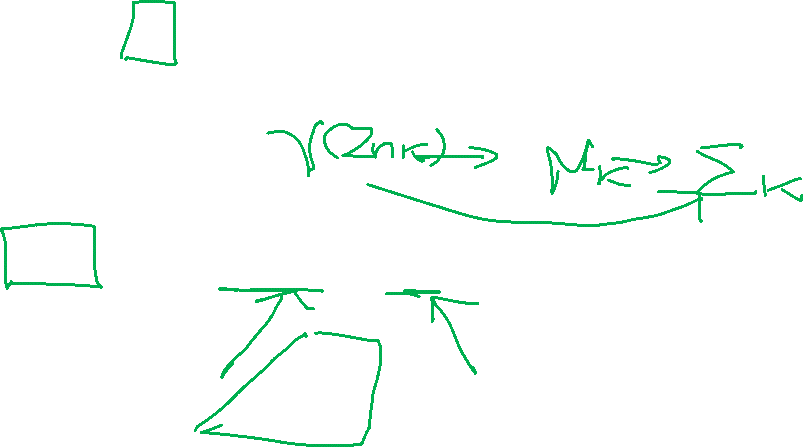 γ(Znk) → μk → Σk